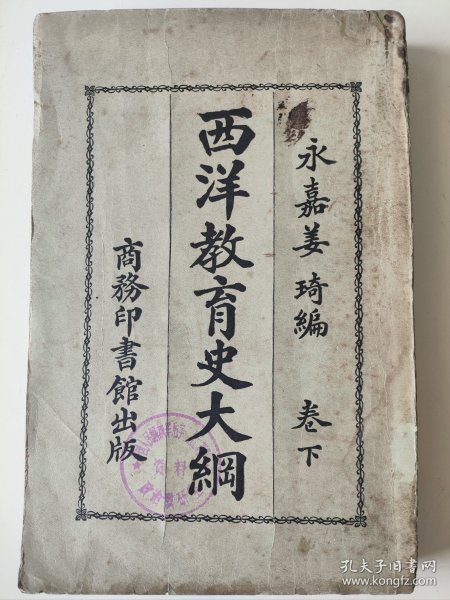 永嘉姜琦編 卷下
西洋教育史大綱
商務印書館出版
資料
孔夫子旧书网
www.kongfz.com